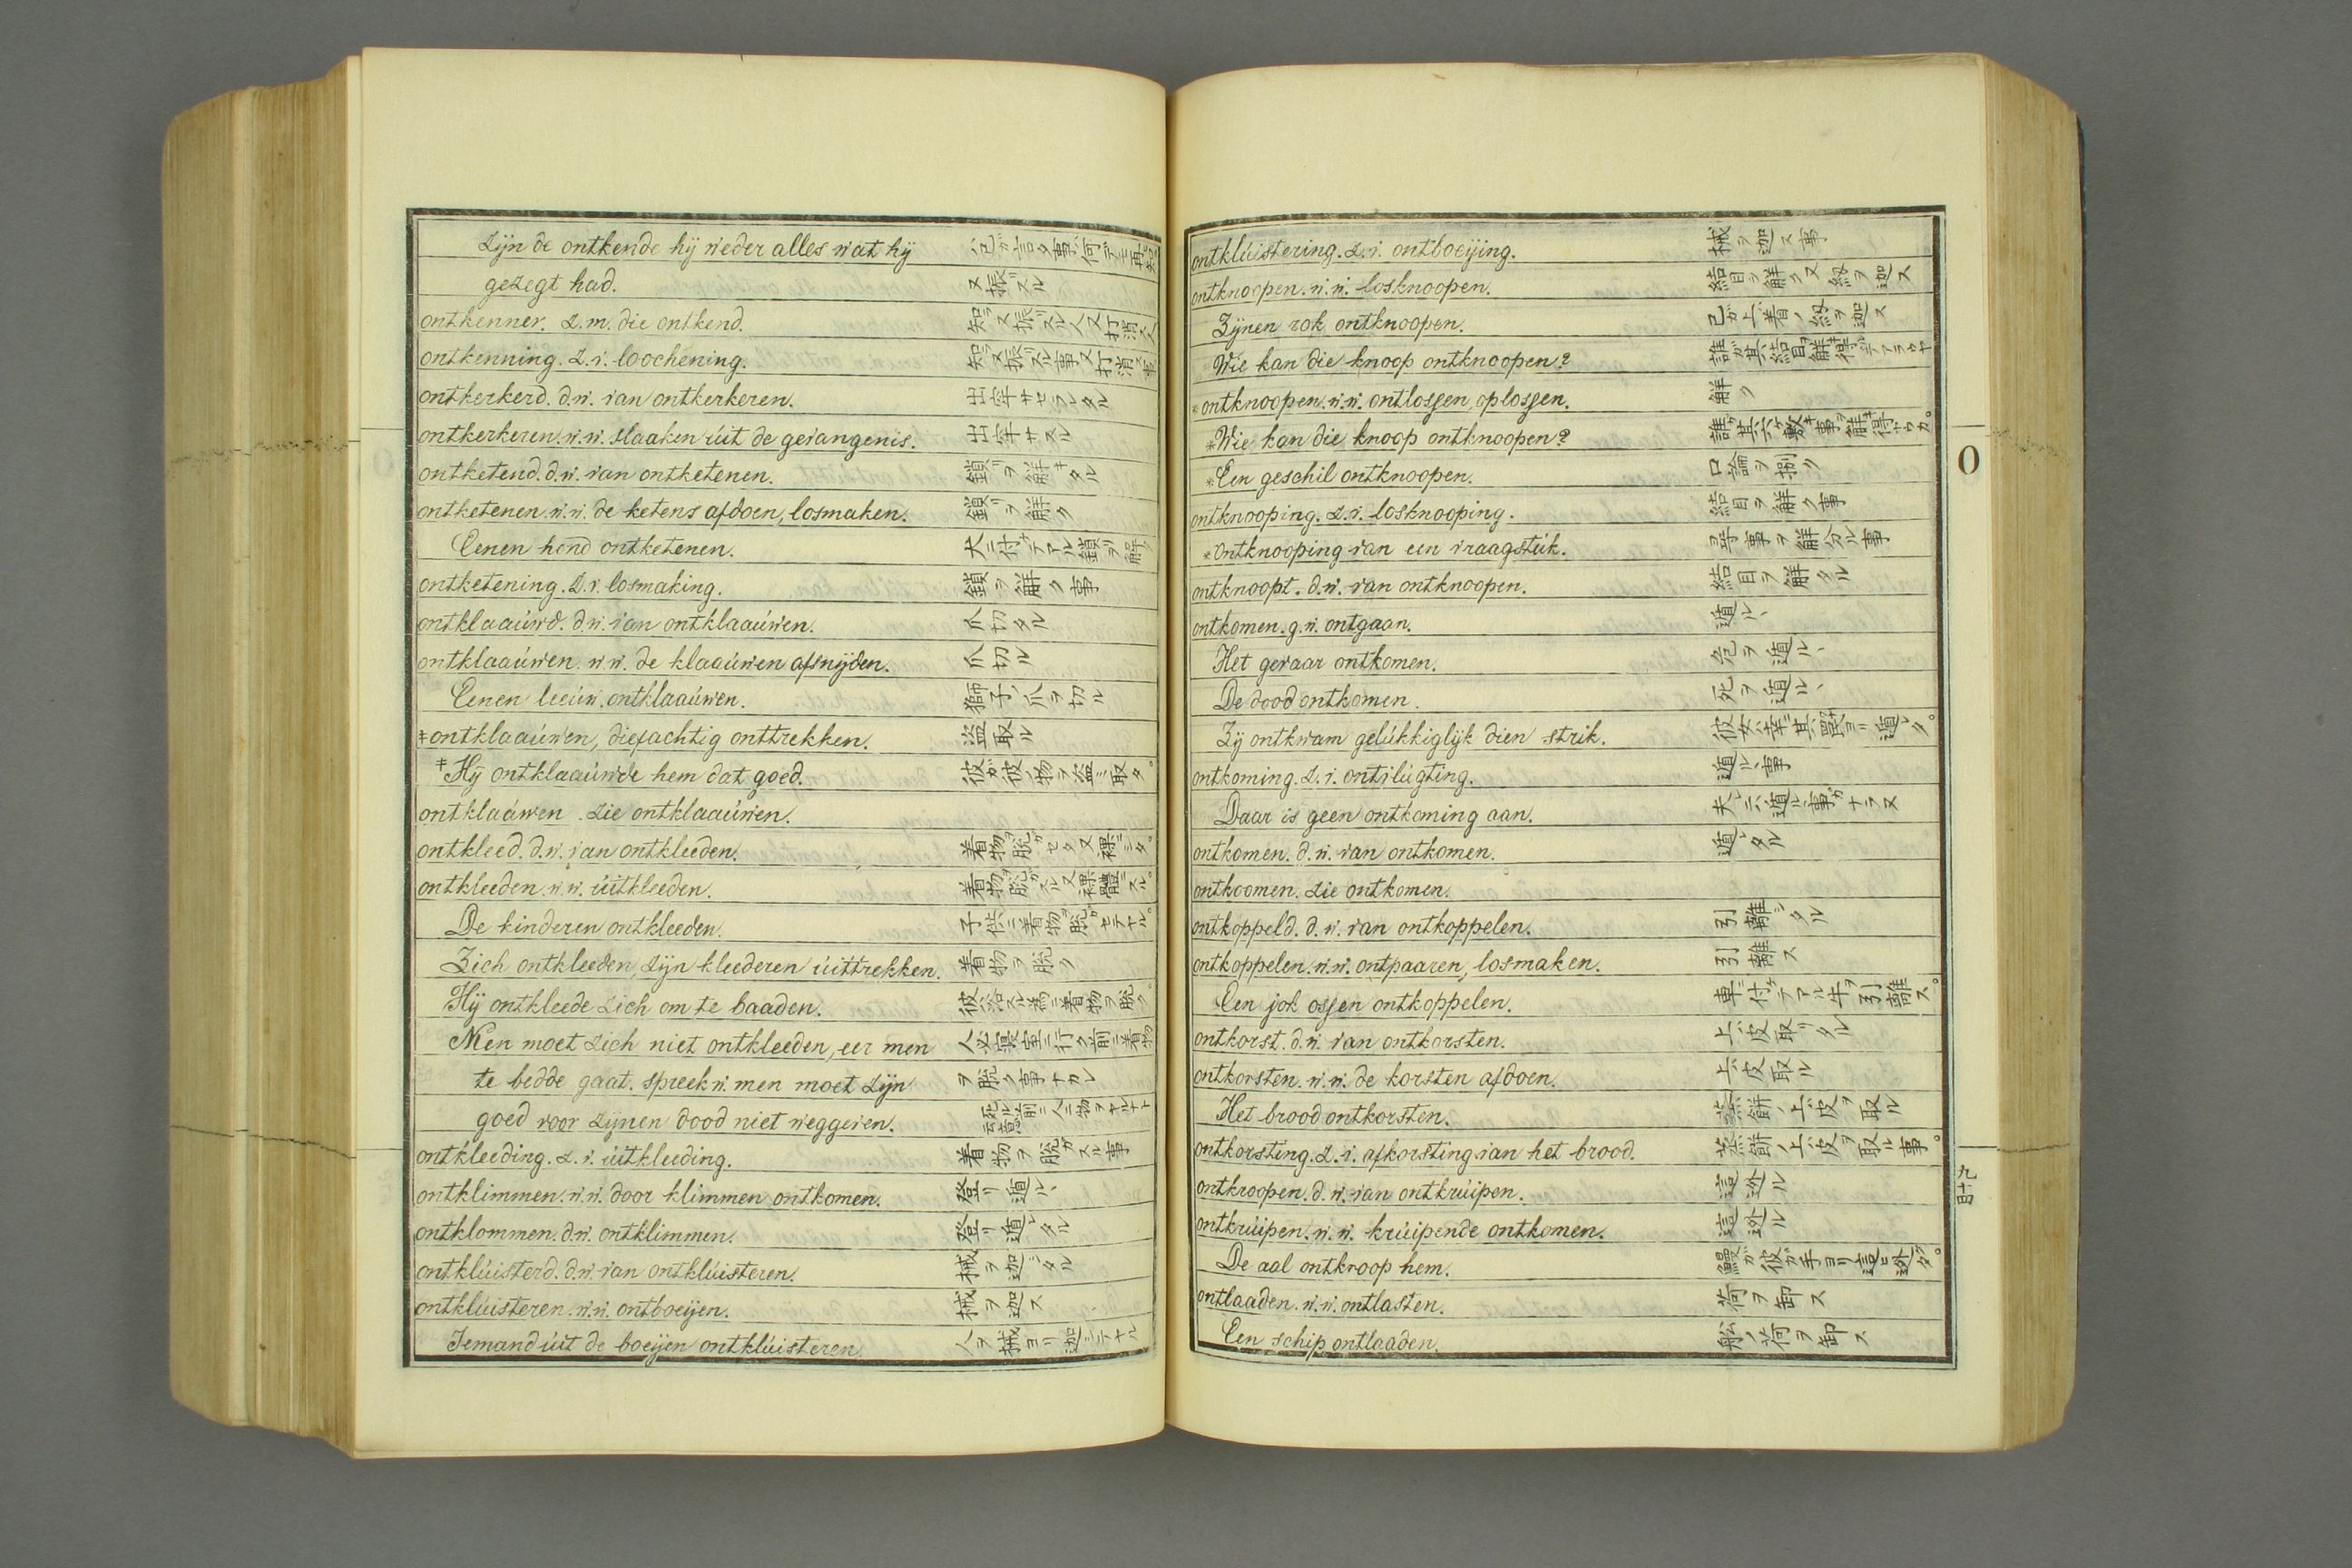 Zijn de ontkende hij weder alles wat hij 己ガ言タ事ヲ何デモ再知ラ
gezegt had. ヌ振スル
ontkenner. z.m. die ontkend. 知ラヌ振スル人又打消ス人
ontkenning. z.v. loochening. 知ラヌ振スル事又打消ス事
ontkerkerd. d.w. van ontkerkeren. 出牢サセラレタル
ontkerkeren. w.w. slaaken úit de gevangenis. 出牢サスル
ontketend. d.w. van ontketenen. 鎖ヲ解キタル
ontketenen. w.w. de ketens afdoen, losmaken. 鎖ヲ解ク
Eenen hond ontketenen. 犬ニ付ケテアル鎖ヲ解ク
ontketening. z.v. losmaking. 鎖ヲ解ク事
ontklaaúwd. d.w. van ontklaaúwen. 爪切タル
ontklaaúwen. w.w. de klaaúwen afsnijden. 爪切ル
Eenen leeúw ontklaaúwen. 獅子ノ爪ヲ切ル
‡ontklaaúwen, diefachtig onttrekken. 盗取ル
‡Hij ontklaaúwde hem dat goed. 彼ガ彼ノ物ヲ盗ミ取タ。
ontklaáwen. zie ontklaaúwen.
ontkleed. d.w. van ontkleeden. 着物ヲ脱ガセタ又裸ニシタ。
ontkleeden. w.w. úitkleeden. 着物ヲ脱ガスル又裸體ニスル。
De kinderen ontkleeden. 子供ニ着物ヲ脱ガセテヤル。
Zich ontkleeden, zijn kleederen úittrekken. 着物ヲ脱ク
Hij ontkleede zich om te baaden. 彼浴スル為ニ着物ヲ脱ク。
Men moet zich niet ontkleeden, eer men 人必寝室ニ行ク前ニ着物
te bedde gaat. spreekw. men moet zijn ヲ脱ク事ナカレ
goed voor zijnen dood niet weggeven. 死ル前ニ人ニ物ヲヤルナト云意
ontkleeding. z.v. úitkleeding. 着物ヲ脱ガスル事
ontklimmen. w.w. door klimmen ontkomen. 登リ遁ルヽ
ontklommen. d.w. ontklimmen. 登リ遁レタル
ontklúisterd. d.w. van ontklúisteren. 械ヲ迦シタル
ontklúisteren. w.w. ontboeijen. 械ヲ迦ス
Iemand úit de boeijen ontklúisteren. 人ヲ械ヨリ迦シテヤル
ontklúistering. z.v. ontboeijing. 械ヲ迦ス事
ontknoopen. w.w. losknoopen. 結目ヲ解ク又紐ヲ迦ス
Zijnen rok ontknoopen. 己ガ上着ノ紐ヲ迦ス
Wie kan die knoop ontknoopen? 誰ガ其結目ヲ解得テアラウヤ
*ontknoopen. w.w. ontlossen, oplossen. 解ク
*Wie kan die knoop ontknoopen? 誰ガ其六ケ敷キ事ヲ解得ヤウカ。
*Een geschil ontknoopen. 口論ヲ捌ク
ontknooping. z.v. losknooping. 結目ヲ解ク事
*ontknooping van een vraagstúk. 尋事ヲ解分ル事
ontknoopt. d.w. van ontknoopen. 結目ヲ解タル
ontkomen. g.w. ontgaan. 遁ルヽ
Het gevaar ontkomen. 危ヲ遁ルヽ
De dood ontkomen. 死ヲ遁ルヽ
Zij ontkwam gelúkkiglijk dien strik. 彼女ハ幸ニ其罠ヨリ遁レタ。
ontkoming. z.v. ontvlúgting. 遁ルヽ事
Daar is geen ontkoming aan. 夫レニハ遁ルヽ事ガナラヌ
ontkomen. d.w. van ontkomen. 遁レタル
ontkoomen. zie ontkomen.
ontkoppeld. d.w. van ontkoppelen. 引離シタル
ontkoppelen. w.w. ontpaaren, losmaken. 引離ス
Een jok ossen ontkoppelen. 車ニ付ケテアル牛ヲ引離ス。
ontkorst. d.w. van ontkorsten. 上ハ皮取リタル
ontkorsten. w.w. de korsten afdoen. 上ハ皮取ル
Het brood ontkorsten. 蒸餅ノ上ハ皮ヲ取ル
ontkorsting. z.v. afkorsting van het brood. 蒸餅ノ上ハ皮ヲ取ル事。
ontkroopen. d.w. van ontkrúipen. 這迯ル
ontkrúipen. w.w. krúipende ontkomen. 這迯ル
De aal ontkroop hem. 鰻ガ彼ガ手ヨリ這ヒ迯ゲタ。
ontlaaden. w.w. ontlasten. 荷ヲ卸ス
Een schip ontlaaden. 舩ノ荷ヲ卸ス
O
九十四